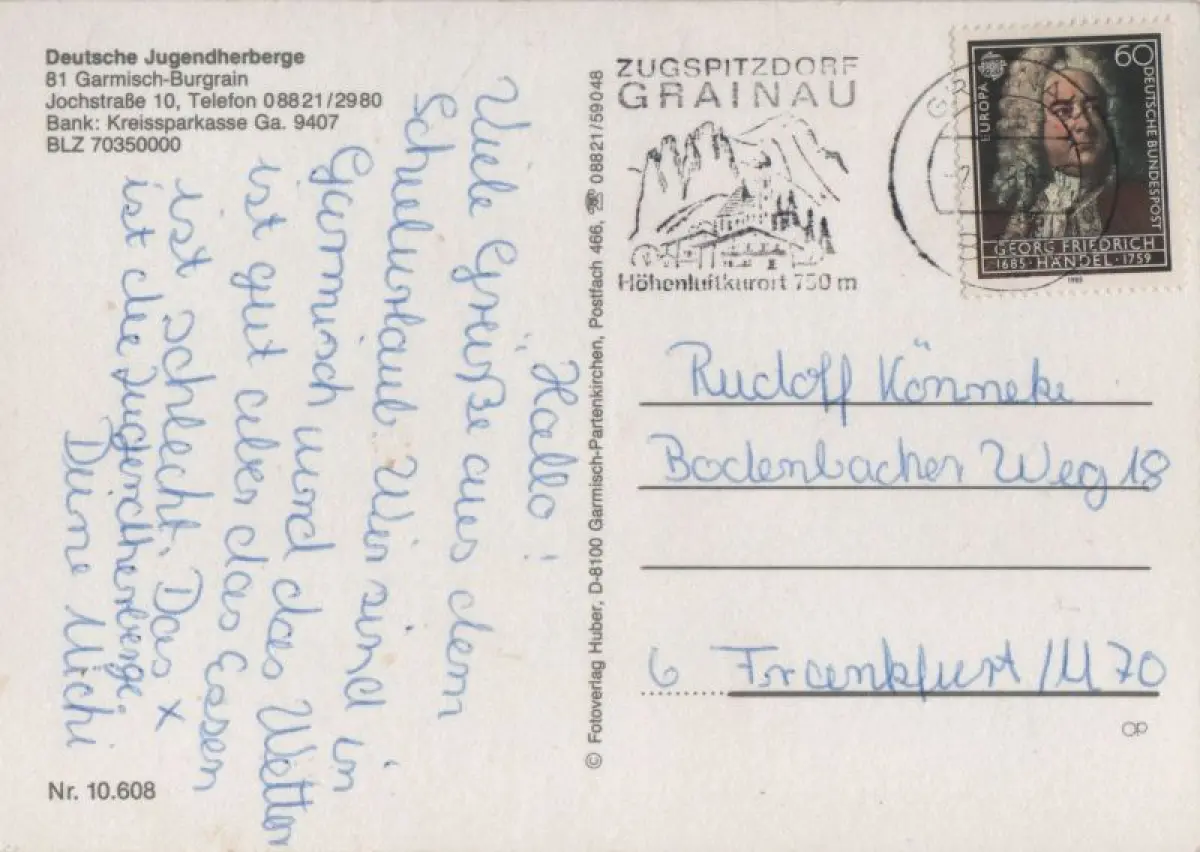 Deutsche Jugendherberge
81 Garmisch-Burgrain
Jochstraße 10, Telefon 08821/2980
Bank: Kreissparkasse Ga. 9407
BLZ 70350000
"Hallo!
Viele Grüße aus dem
Schulurlaub. Wir sind in
Garmisch und das Wetter
ist gut aber das Essen
ist schlecht. Das x
ist die Jugendherberge.
Deine Michi
Nr. 10.608
© Fotoverlag Huber, D-8100 Garmisch-Partenkirchen, Postfach 466, ☏ 08821/59048
ZUGSPITZDORF
GRAINAU
Höhenluftkurort 750 m
60
EUROPA
DEUTSCHE BUNDESPOST
GEORG FRIEDRICH
1685 · HÄNDEL · 1759
1985
Rudolf Könneke
Bodenbacher Weg 18
6 Frankfurt/M 70